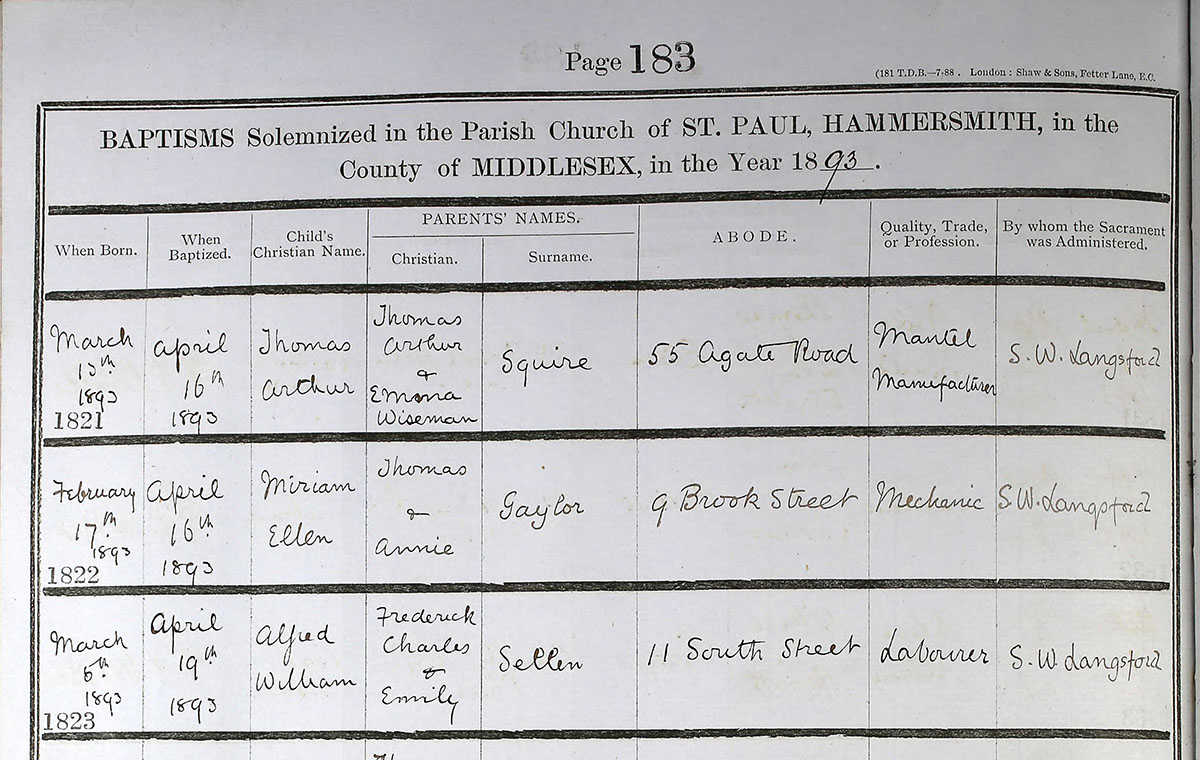 Page 183
(181 T.D.B.—7-88. London: Shaw & Sons, Fetter Lane, E.C.
BAPTISMS Solemnized in the Parish Church of ST. PAUL, HAMMERSMITH, in the
County of MIDDLESEX, in the Year 1893.
When Born.
When
Baptized.
Child's
Christian Name.
PARENTS' NAMES.
Christian.
Surname.
ABODE.
Quality, Trade,
or Profession.
By whom the Sacrament
was Administered.
March
13th
1893
1821
April
16th
1893
Thomas
Arthur
Thomas
Arthur
&
Emma
Wiseman
Squire
55 Agate Road
Mantel
Manufacturer
S. W. Langsford
February
17th
1893
1822
April
16th
1893
Miriam
Ellen
Thomas
&
Annie
Gaylor
9 Brook Street
Mechanic
S. W. Langsford
March
5th
1893
1823
April
19th
1893
Alfred
William
Frederick
Charles
&
Emily
Sellen
11 South Street
Labourer
S. W. Langsford